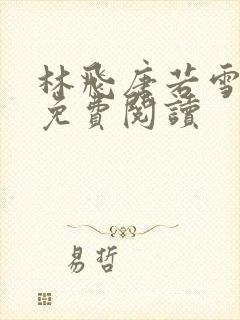 林飛唐若雪
免費閱讀
易哲